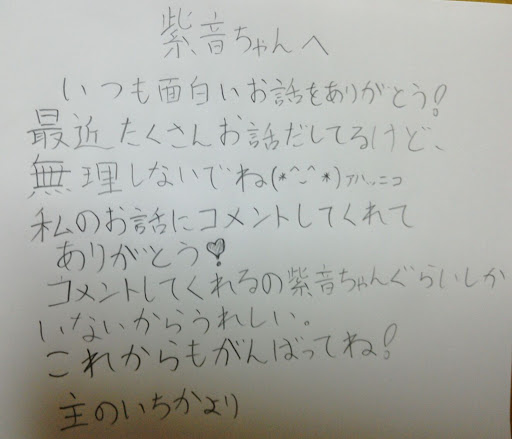 紫音ちゃんへ
いつも面白いお話をありがとう!
最近たくさんお話だしてるけど、
無理しないでね(*^-^*)アハッニコ
私のお話にコメントしてくれて
ありがとう♥
コメントしてくれるの紫音ちゃんぐらいしか
いないからうれしい。
これからもがんばってね!
主のいちかより